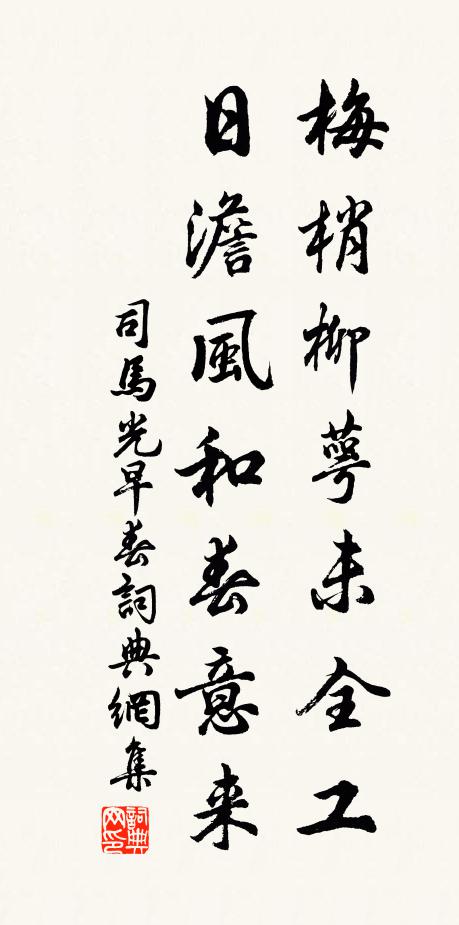 梅梢柳萼未全工
日澹風和春意来
司馬光早春詞典網集
詞典網印